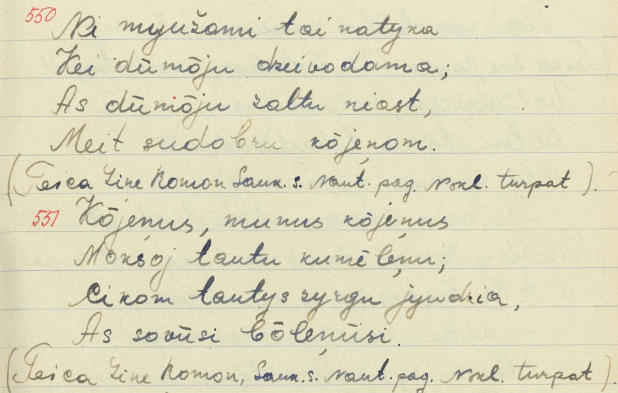 550 Ni myužami tai natyka
Kei dūmōju dzeivodama;
As dūmōju zaltu niast,
Meit sudobru kōjeņom.
(Teica Line Romon, Saun. s. Naut. pag. Nokl. turpat).
551 Kōjeņus, munus kōjeņus
Moksoj tautu kumēleņu;
Cikom tautys zyrgu jyudzia,
As sovūsi bōleņūsi.
(Teica Line Romon, Saun. s. Naut. pag. Nokl. turpat).